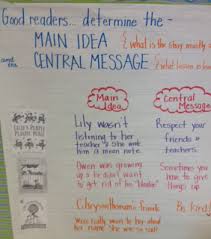 Good readers... determine the -
MAIN IDEA & what is the story mostly
and the
CENTRAL MESSAGE & what lesson is
Main Idea
Central Message
Lily wasn't
listening to her
teacher & she
him a mean note.
Respect your
friends &
teachers.
Owen was growing
up & he didn't want
to get rid of his "blankie"
Sometimes you
have to give
things up
Chrysanthemum's friends
were really mean to her about
her name. She was so sad!
Be kind!